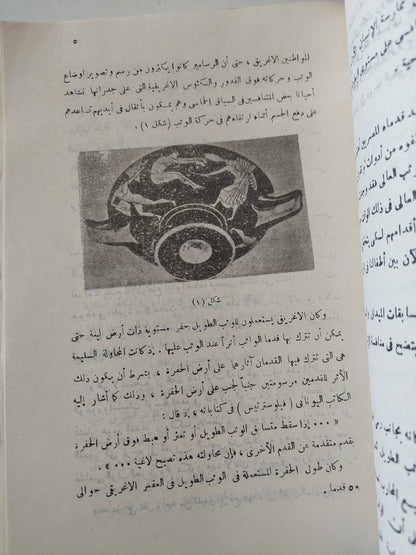 ٥
المواطنين الاغريق ، حتى أن الرسامين كانوا يكثرون من رسم وتصوير أوضاع
الوثب وحركاته فوق القدور والكئوس الاغريقية التى على جدرانها نشاهد
أحيانا بعض المتنافسين فى السباق الخماسى وهم يمسكون بأثقال فى أيديهم تساعدهم
على دفع الجسم أثناء ارتقاءهم فى حركة الوثب ( شكل ١ ) .
شكل (١)
وكان الاغريق يستعملون للوثب الطويل حفر مستوية ذات أرض لينة حتى
يمكن أن تترك بها قدما الواثب أثراً عند الوثب عليها . إذ كانت المحاولة السليمة
هى التى تترك فيها القدمان آثارهما على أرض الحفرة ، بشرط أن يكون ذلك
الأثر للقدمين مرسومتين جنباً لجنب على أرض الحفرة ، وذلك كما أشار إليه
الكاتب اليونانى ( فيلوستراتيس ) فى كتاباته ، إذ قال :
« ... إذا سقط متسابق الوثب الطويل أو تعثر أو هبط فوق أرض الحفرة
بقدم متقدمة عن القدم الأخرى ، فإن محاولته هذه تصبح لاغية ... » .
وكان طول الحفرة المستعملة فى الوثب الطويل فى العصر الاغريقى حوالى
٥٠ قدما .